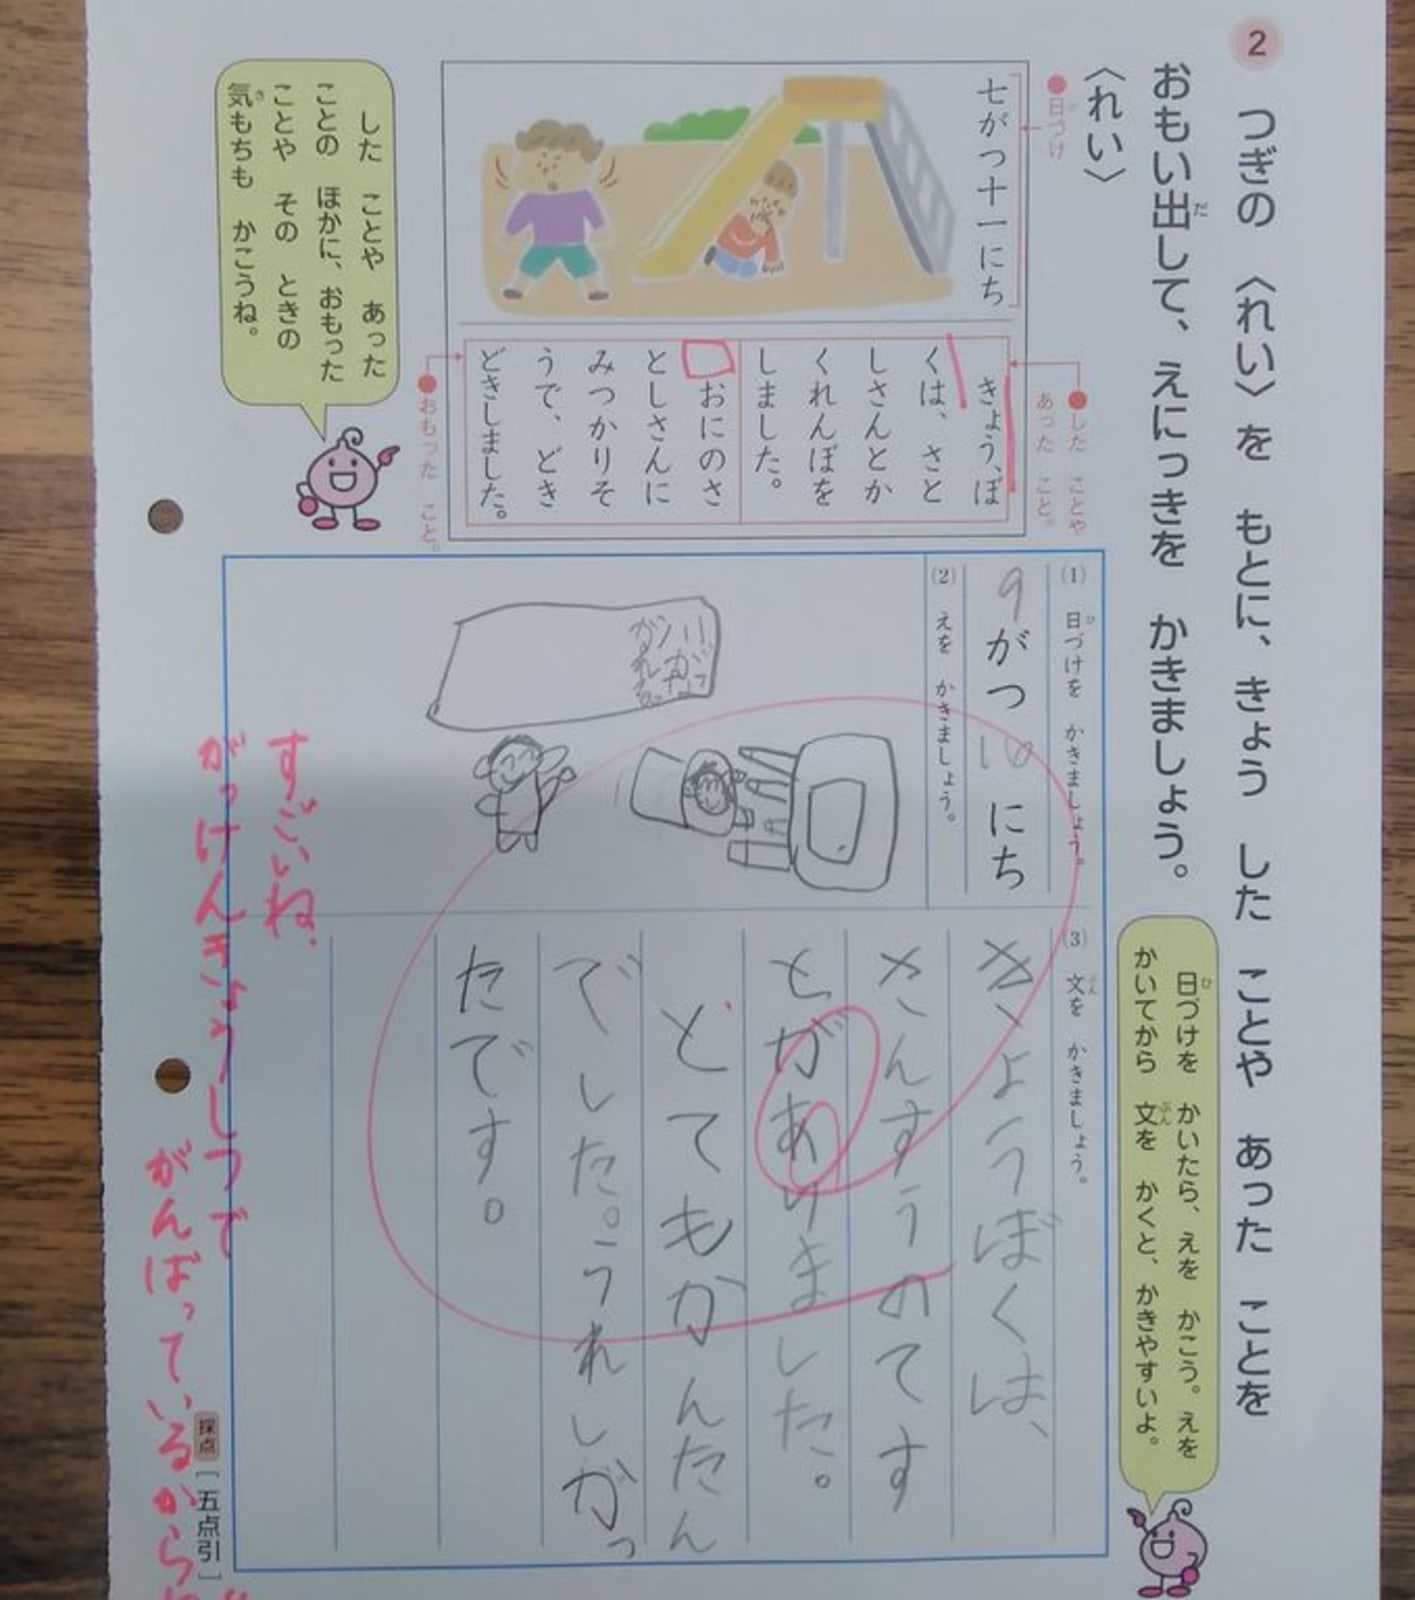 2 つぎの 〈れい〉を もとに、きょう した ことや あった ことを
おもい出して、えにっきを かきましょう。
だ
〈れい〉
日づけ
七がつ十一にち
した ことや
あった こと。
きょう、ぼ
くは、さと
しさんとか
くれんぼを
しました。
おにのさ
としさんに
みつかりそ
うで、どき
どきしました。
おもった こと。
した ことや あった
ことの ほかに、おもった
ことや その ときの
気もちも かこうね。
き
日づけを かいたら、えを かこう。えを
ひ
かいてから 文を かくと、かきやすいよ。
ぶん
(1) 日づけを かきましょう。
ひ
9がつ10にち
(2) えを かきましょう。
(3) 文を かきましょう。
ぶん
きょうぼくは、
さんすうのてす
とがありました。
とてもかんたん
でした。うれしがっ
たです。
すごいね、
がっけんきょうしつで
がんばっているからね
採点[五点引]